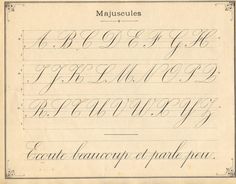 Majuscules
A B C D E F G H
I J K L M N O P Q
R S T U V W X Y Z
Ecoute beaucoup et parle peu.